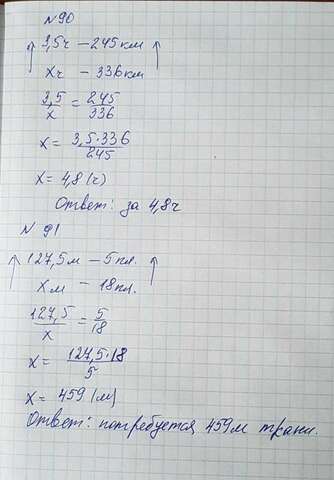 №90
3,5ч – 245 км
xч – 336 км
3,5/x = 245/336
x = 3,5·336/245
x = 4,8 (ч)
Ответ: за 4,8ч
№ 91
127,5 м – 5 пл.
x м – 18 пл.
127,5/x = 5/18
x = 127,5·18/5
x = 459 (м)
Ответ: потребуется 459 м ткани.